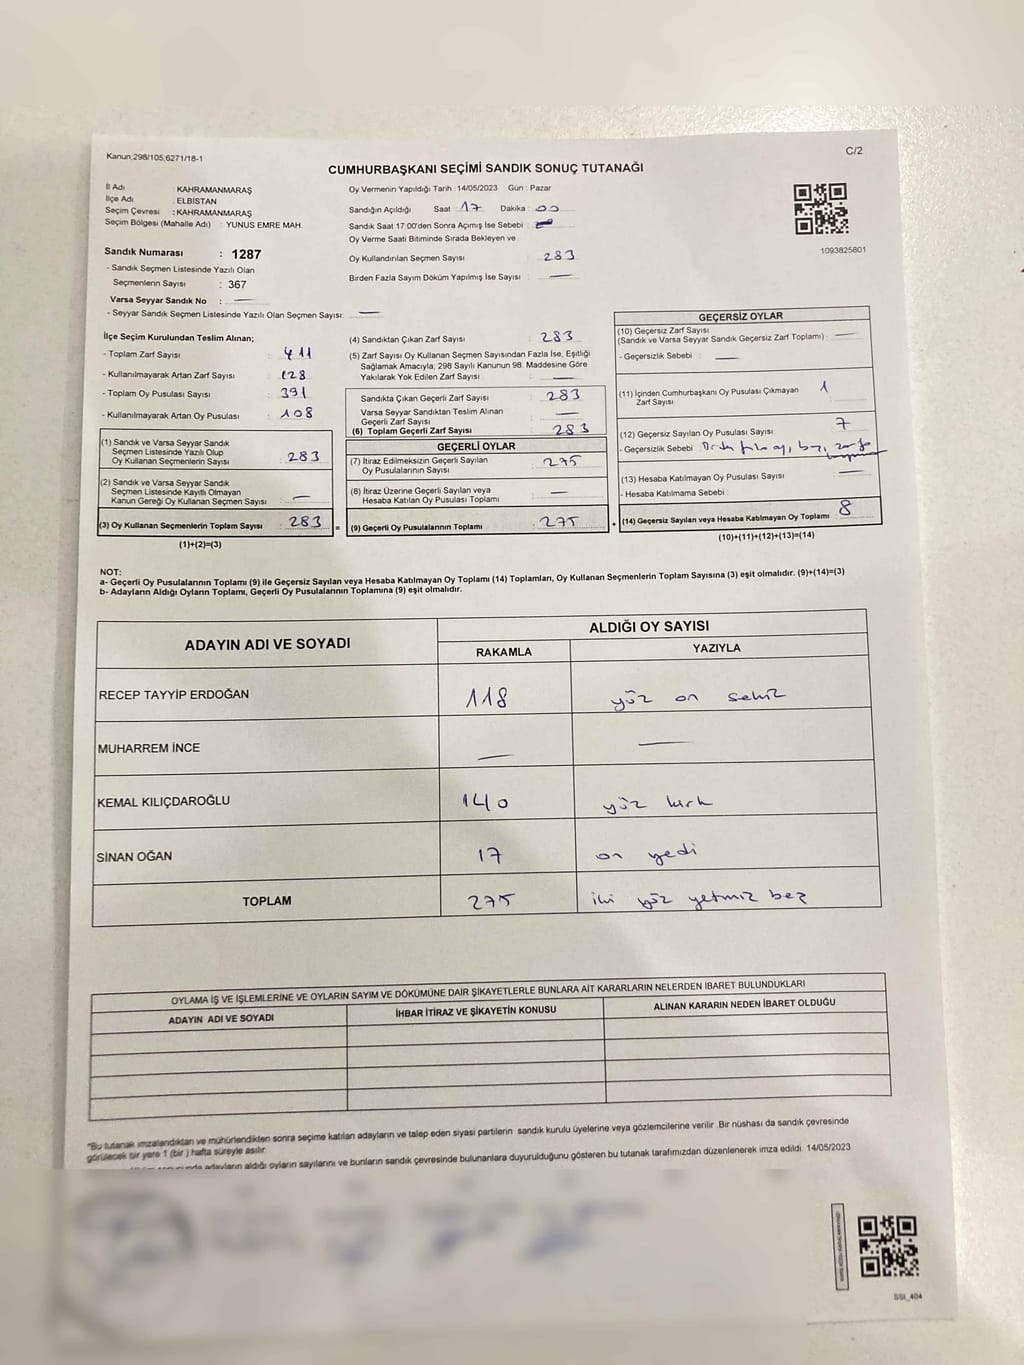 Kanun;298/105;6271/18-1
C/2
CUMHURBAŞKANI SEÇİMİ SANDIK SONUÇ TUTANAĞI
İl Adı : KAHRAMANMARAŞ
İlçe Adı : ELBİSTAN
Seçim Çevresi : KAHRAMANMARAŞ
Seçim Bölgesi (Mahalle Adı) : YUNUS EMRE MAH.
Sandık Numarası : 1287
- Sandık Seçmen Listesinde Yazılı Olan
Seçmenlerin Sayısı : 367
Varsa Seyyar Sandık No : —
- Seyyar Sandık Seçmen Listesinde Yazılı Olan Seçmen Sayısı: —
Oy Vermenin Yapıldığı Tarih : 14/05/2023 Gün : Pazar
Sandığın Açıldığı Saat : 17 Dakika : 00
Sandık Saat 17:00'den Sonra Açımış İse Sebebi :
Oy Verme Saati Bitiminde Sırada Bekleyen ve
Oy Kullandırılan Seçmen Sayısı : 283
Birden Fazla Sayım Döküm Yapılmış İse Sayısı : —
1093825801
İlçe Seçim Kurulundan Teslim Alınan;
- Toplam Zarf Sayısı : 411
- Kullanılmayarak Artan Zarf Sayısı : 128
- Toplam Oy Pusulası Sayısı : 391
- Kullanılmayarak Artan Oy Pusulası : 108
(1) Sandık ve Varsa Seyyar Sandık
Seçmen Listesinde Yazılı Olup
Oy Kullanan Seçmenlerin Sayısı : 283
(2) Sandık ve Varsa Seyyar Sandık
Seçmen Listesinde Kayıtlı Olmayan
Kanun Gereği Oy Kullanan Seçmen Sayısı : —
(3) Oy Kullanan Seçmenlerin Toplam Sayısı : 283 =
(1)+(2)=(3)
(4) Sandıktan Çıkan Zarf Sayısı : 283
(5) Zarf Sayısı Oy Kullanan Seçmen Sayısından Fazla İse, Eşitliği
Sağlamak Amacıyla; 298 Sayılı Kanunun 98. Maddesine Göre
Yakılarak Yok Edilen Zarf Sayısı : —
Sandıkta Çıkan Geçerli Zarf Sayısı : 283
Varsa Seyyar Sandıktan Teslim Alınan
Geçerli Zarf Sayısı : —
(6) Toplam Geçerli Zarf Sayısı : 283
GEÇERLİ OYLAR
(7) İtiraz Edilmeksizin Geçerli Sayılan
Oy Pusulalarının Sayısı : 275
(8) İtiraz Üzerine Geçerli Sayılan veya
Hesaba Katılan Oy Pusulası Toplamı : —
(9) Geçerli Oy Pusulalarının Toplamı : 275 +
GEÇERSİZ OYLAR
(10) Geçersiz Zarf Sayısı
(Sandık ve Varsa Seyyar Sandık Geçersiz Zarf Toplamı) : —
- Geçersizlik Sebebi : —
(11) İçinden Cumhurbaşkanı Oy Pusulası Çıkmayan
Zarf Sayısı : 1
(12) Geçersiz Sayılan Oy Pusulası Sayısı : 7
- Geçersizlik Sebebi :
(13) Hesaba Katılmayan Oy Pusulası Sayısı : —
- Hesaba Katılmama Sebebi :
(14) Geçersiz Sayılan veya Hesaba Katılmayan Oy Toplamı : 8
(10)+(11)+(12)+(13)=(14)
NOT:
a- Geçerli Oy Pusulalarının Toplamı (9) ile Geçersiz Sayılan veya Hesaba Katılmayan Oy Toplamı (14) Toplamları, Oy Kullanan Seçmenlerin Toplam Sayısına (3) eşit olmalıdır. (9)+(14)=(3)
b- Adayların Aldığı Oyların Toplamı, Geçerli Oy Pusulalarının Toplamına (9) eşit olmalıdır.
ADAYIN ADI VE SOYADI
ALDIĞI OY SAYISI
RAKAMLA YAZIYLA
RECEP TAYYİP ERDOĞAN 118 yüz on sekiz
MUHARREM İNCE — —
KEMAL KILIÇDAROĞLU 140 yüz kırk
SİNAN OĞAN 17 on yedi
TOPLAM 275 iki yüz yetmiş beş
OYLAMA İŞ VE İŞLEMLERİNE VE OYLARIN SAYIM VE DÖKÜMÜNE DAİR ŞİKAYETLERLE BUNLARA AİT KARARLARIN NELERDEN İBARET BULUNDUKLARI
ADAYIN ADI VE SOYADI İHBAR İTİRAZ VE ŞİKAYETİN KONUSU ALINAN KARARIN NEDEN İBARET OLDUĞU
*Bu tutanak imzalandıktan ve mühürlendikten sonra seçime katılan adayların ve talep eden siyasi partilerin sandık kurulu üyelerine veya gözlemcilerine verilir. Bir nüshası da sandık çevresinde
görülecek bir yere 1 (bir ) hafta süreyle asılır.
adayların aldığı oyların sayılarını ve bunların sandık çevresinde bulunanlara duyurulduğunu gösteren bu tutanak tarafımızdan düzenlenerek imza edildi. 14/05/2023
SSI_404